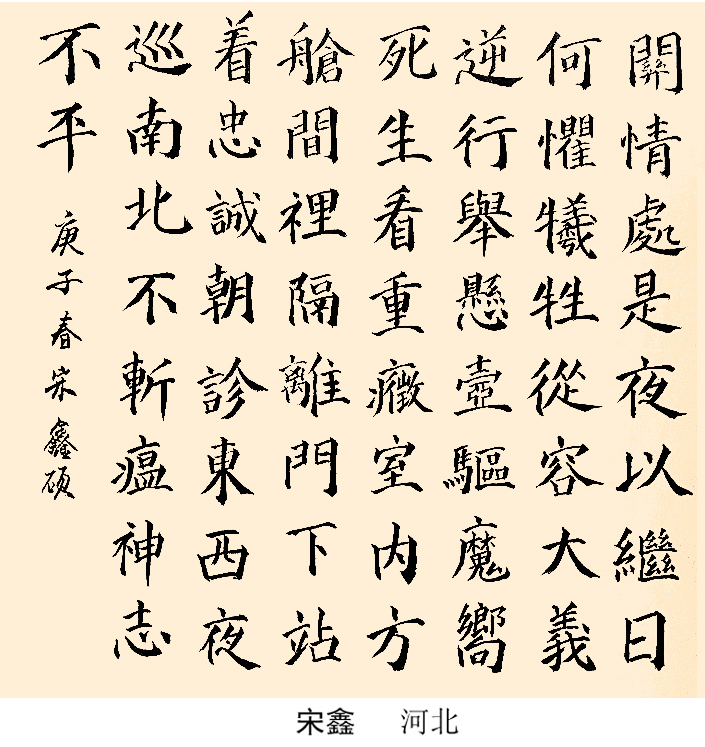 關情處是夜以繼日
何懼犧牲從容大義
逆行舉懸壺驅魔嚮
死生看重癥室内方
艙間裡隔離門下站
着忠誠朝診東西夜
巡南北不斬瘟神志
不平 庚子春宋鑫硕
宋鑫 河北